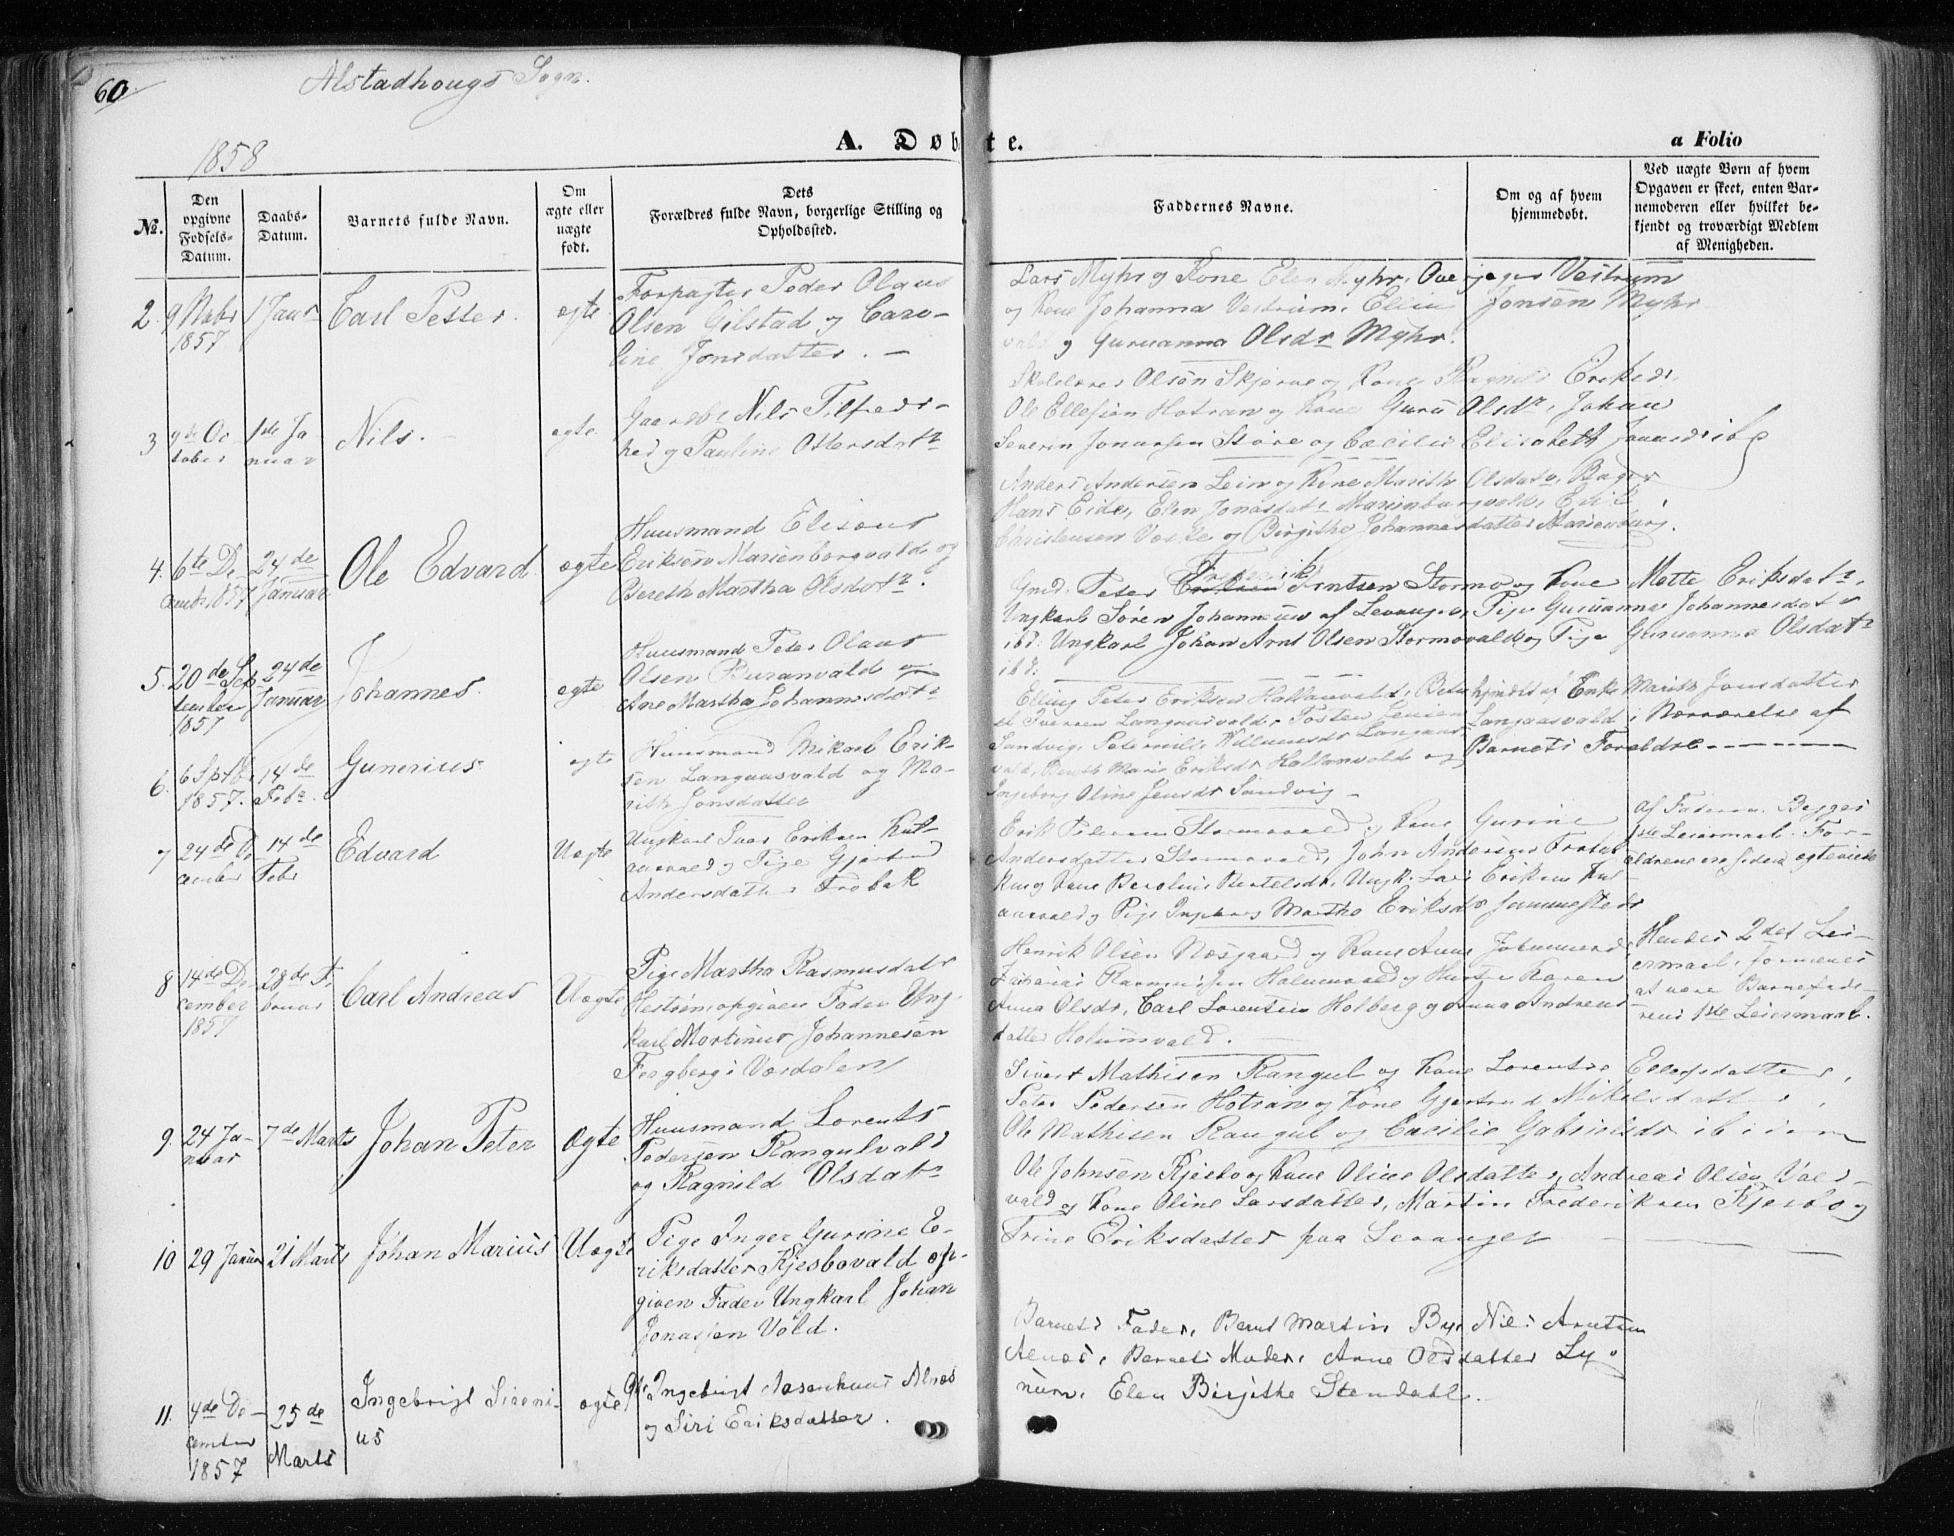 60
Alstadhougs Sogn.
1858
A. Døbte.
a Folio
No.
Den opgivne Fødsels-Datum.
Daabs-Datum.
Barnets fulde Navn.
Om ægte eller uægte født.
Dets Forældres fulde Navn, borgerlige Stilling og Opholdssted.
Faddernes Navne.
Om og af hvem hjemmedøbt.
Ved uægte Børn af hvem Opgaven er skeet, enten Barnemoderen eller hvilket bekjendt og troværdigt Medlem af Menigheden.
2. 9 Nobr 1857
1 Janr
Carl Petter.
ægte
Forpagter Peder Olaus
Olsen Gilstad og Caro-
line Jonsdatter. —
Lars Myhr og Kone Elen Myhr, Ove Vestrum
og Kone Johanna Vestrum, Jonsen Myhr
vald og Guruanna Olsdr Myhr.
3 9de October
1ste Januar
Nils. —
ægte.
Gaardbr Nils Tilfreds-
hed og Pauline Ottersdatr
Skolelærer Olsen Skjerve og Kone
Ole Ellefsen Hotran og Kone Guru Olsdr, Johan
Severin Jonassen Støre og Cæcilie Elisabeth
4. 6te December 1857
24de Januar
Ole Edvard.
ægte
Huusmand Elisæus
Eriksen Marienborgvald og
Bereth Martha Olsdatr.
Anders Andersen Lein og Kone Marith Olsdatr,
Hans Eide, Elen Jonasdatr Marienburgvald,
Christensen Voske og Birgithe Johannesdatter Marienburg.
5. 20de September 1857
24de Januar
Johannes.
ægte
Huusmand Peter Olaus
Olsen Buranvald og
Ane Martha Johannesdatr
Gmd. Peter Frederik Arntsen Stormo og Kone Mette Eriksdatr,
Ungkarl Søren Johannesen af Levanger, Pige Guruanna Johannesdatr
ibd: Ungkarl Johan Arnt Olsen Stormovald og Pige Guruanna Olsdatr
ibd:
6. 6 Sptbr 1857.
14de Febr.
Gunerius
ægte
Huusmand Mikael Erik-
sen Langaasvald og Ma-
rith Jonsdatter
Elling Peter Eriksen Hallanvald,
Langaasvald,
Sandvig, Langaas-
vald, Bereth Marie Eriksdr Hallanvald og
Ingeborg Oline Jensdr Sandvig —
hjemdøbt af Enke Marith Jonsdatter
Langaasvald i Nærværelse af
Barnets Forældre
7 24de December
14de Febr
Edvard
Uægte
Ungkarl Ivar Eriksen
og Pige Gjertrud
Andersdatter Trøbak
Erik Pedersen Stormovald og Kone Gurine
Andersdatter Stormovald, John Andersen
og Kone Bertelsdr, Ungk. Lars Eriksen
og Pige Ingeborg Martha Eriksdr sammesteds
af Faderen. Begges
1ste Leiermaal. For-
ældrene ere siden ægteviede
8 14de December 1857
28de Februar
Carl Andreas
Uægte
Pige Martha Rasmusdatr
opgiven Fader Ung-
karl Martinus Johannesen
i Værdalen
Henrik Olsen Næsgaard og Kone Anne
Rasmussen Holmvald og Hustru Karen
Anna Olsdr, Carl Lorentsen Holberg og Anna Andreas-
datter Holmsvald. —
Hendes 2det Lei-
ermaal, formenes
at være Barnefade-
rens 1ste Leiermaal.
9. 24 Januar
7de Marts
Johan Peter
Ægte
Huusmand Lorents
Pedersen Rangulvald
og Ragnild Olsdatr
Sivert Mathisen Rangul og Kone Lorentse Ellefsdatter,
Peter Pedersen Hotran og Kone Gjertrud Mikelsdatter,
Ole Mathisen Rangul og Cæcilie Gabrielsdr ibidem
10 29 Januar
21 Marts
Johan Marius
Uægte
Pige Inger Gurine E-
riksdatter Kjesbovald op-
given Fader Ungkarl Johan
Jonassen Vold.
Ole Johnsen Kjesbo og Kone Oline Olsdatter, Andreas Olsen
vald og Kone Oline Larsdatter, Martin Frederiksen Kjesbo og
Trine Eriksdatter paa Levanger
11. 4de December 1857
25de Marts
Ingebrigt Sireni-
us
ægte
Ingebrigt Alnæs
og Siri Eriksdatter.
Barnets Fader, Bernt Martin Bye, Nils Arntsen
Alnæs, Barnets Moder, Anne Olsdatter Ly-
num, Elen Birgithe Stendahl.